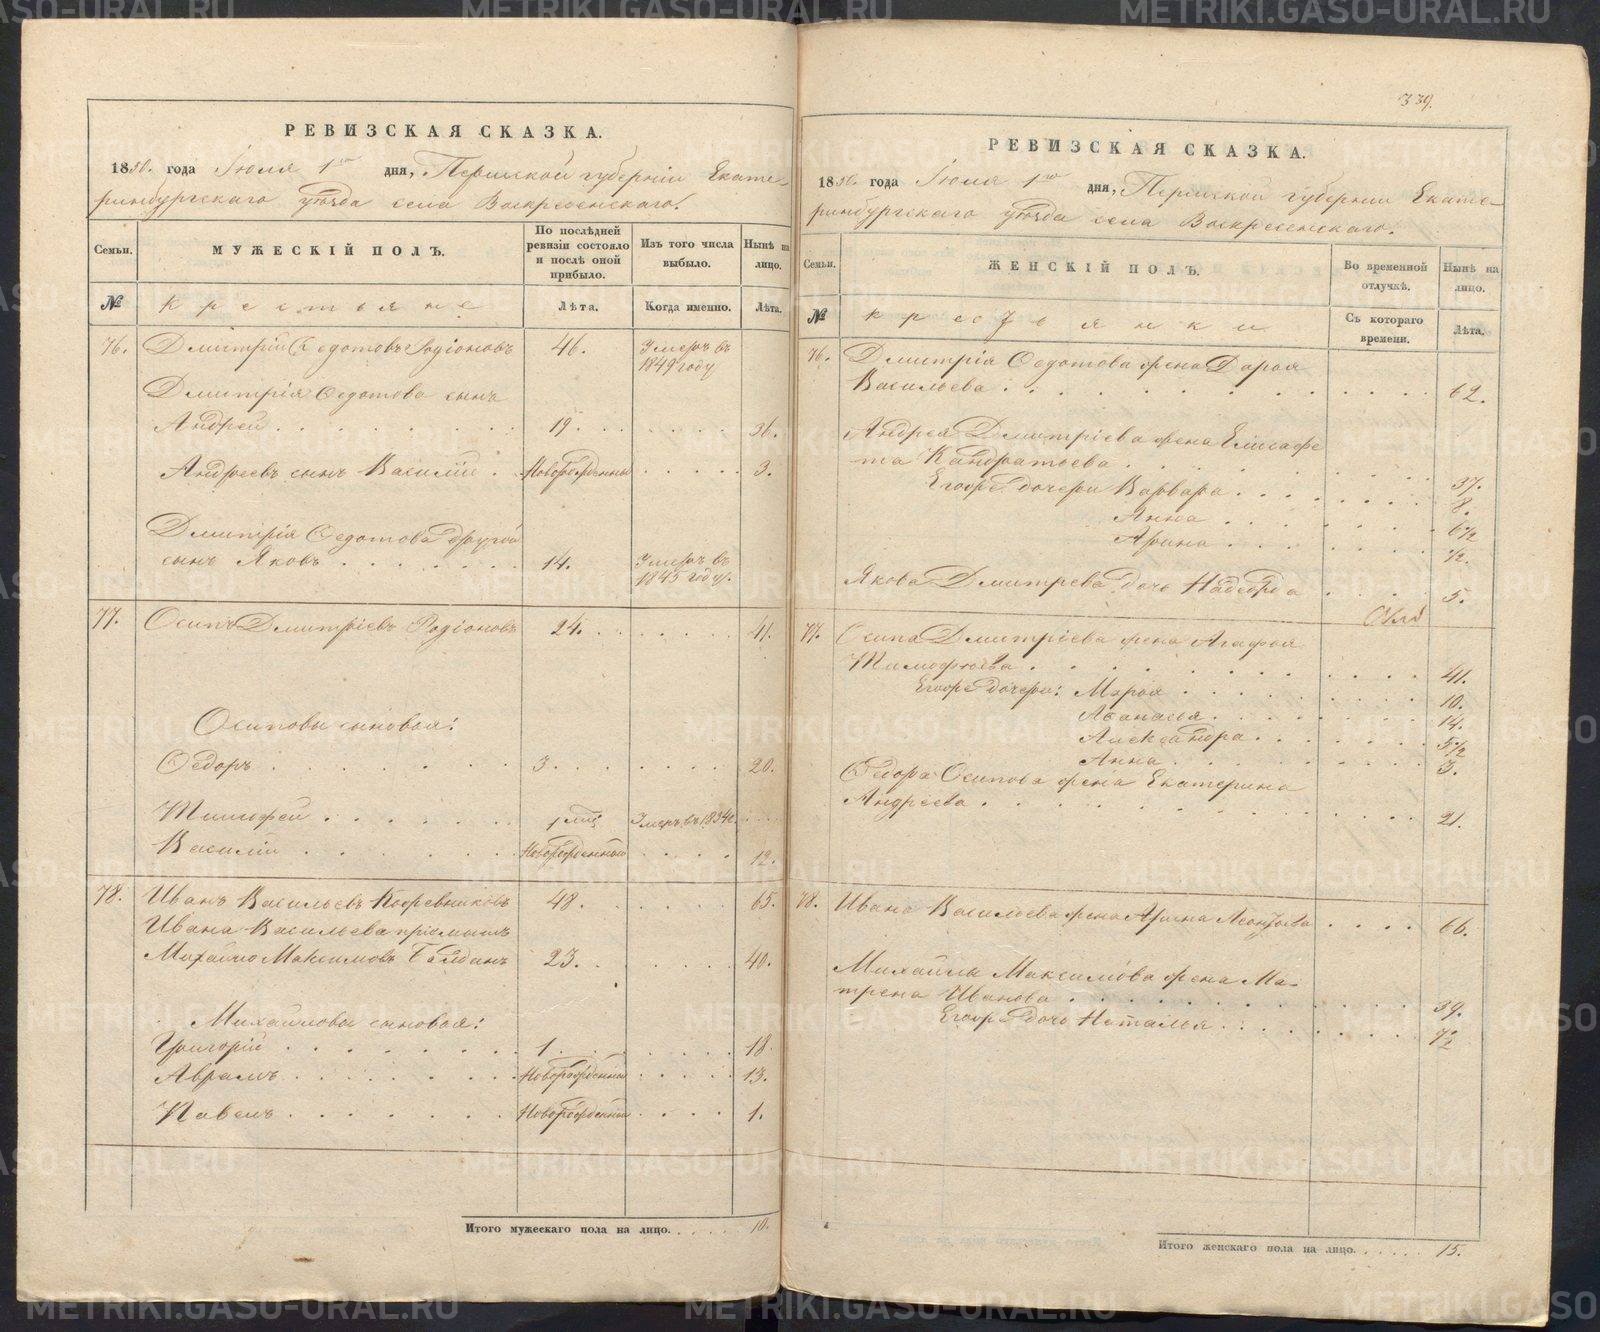 РЕВИЗСКАЯ СКАЗКА.
1850. года Іюля 1го дня, Пермской губерніи Екате-
ринбургскаго уѣзда села Воскресенскаго.
Семьи.
МУЖЕСКІЙ ПОЛЪ.
По послѣдней ревизіи состояло и послѣ оной прибыло.
Изъ того числа выбыло.
Нынѣ на лицо.
№
Крестьяне
Лѣта.
Когда именно.
Лѣта.
76. Дмитрій Ѳедотовъ Родіоновъ 46. Умеръ въ
1849 году
Дмитрія Ѳедотова сынъ
Андрей 19. 36.
Андреевъ сынъ Василій Новорожденный 3.
Дмитрія Ѳедотова другой
сынъ Яковъ 14. Умеръ въ
1845 году.
77. Осипъ Дмитріевъ Родіоновъ 24. 41.
Осиповы сыновья:
Ѳедоръ 3. 20.
Тимофей 1 мѣс. Умеръ въ 1834 г.
Василій Новорожденный 12.
78. Иванъ Васильевъ Кожевниковъ 48. 65.
Ивана Васильева пріемышъ
Михайло Максимовъ Балдинъ 23. 40.
Михайловы сыновья:
Григорій 1. 18.
Аврамъ Новорожденный 13.
Павелъ Новорожденный 1.
Итого мужескаго пола на лицо. 10.
339.
РЕВИЗСКАЯ СКАЗКА.
1850. года Іюля 1го дня, Пермской губерніи Екате-
ринбургскаго уѣзда села Воскресенскаго.
Семьи.
ЖЕНСКІЙ ПОЛЪ.
Во временной отлучкѣ.
Нынѣ на лицо.
№
Крестьянки
Съ котораго времени.
Лѣта.
76. Дмитрія Ѳедотова жена Дарья
Васильева 62.
Андрея Дмитріева жена Елисафе
та Кандратьева 37.
Егоже дочери Варвара 8.
Анна 6 1/2
Арина 1/2.
Якова Дмитрева дочь Надежда 5.
77. Осипа Дмитріева жена Агафья
Тимофеева 41.
Егоже дочери: Марья 10.
Афанасья 14.
Александра 5 1/2
Анна 3.
Ѳедора Осипова жена Екатерина
Андреева 21.
78. Ивана Васильева жена Арина Леонтьева 66.
Михайлы Максимова жена Ма-
трена Иванова 39.
Егоже дочь Наталья 7 1/2
Итого женскаго пола на лицо. 15.
METRIKI.GASO-URAL.RU